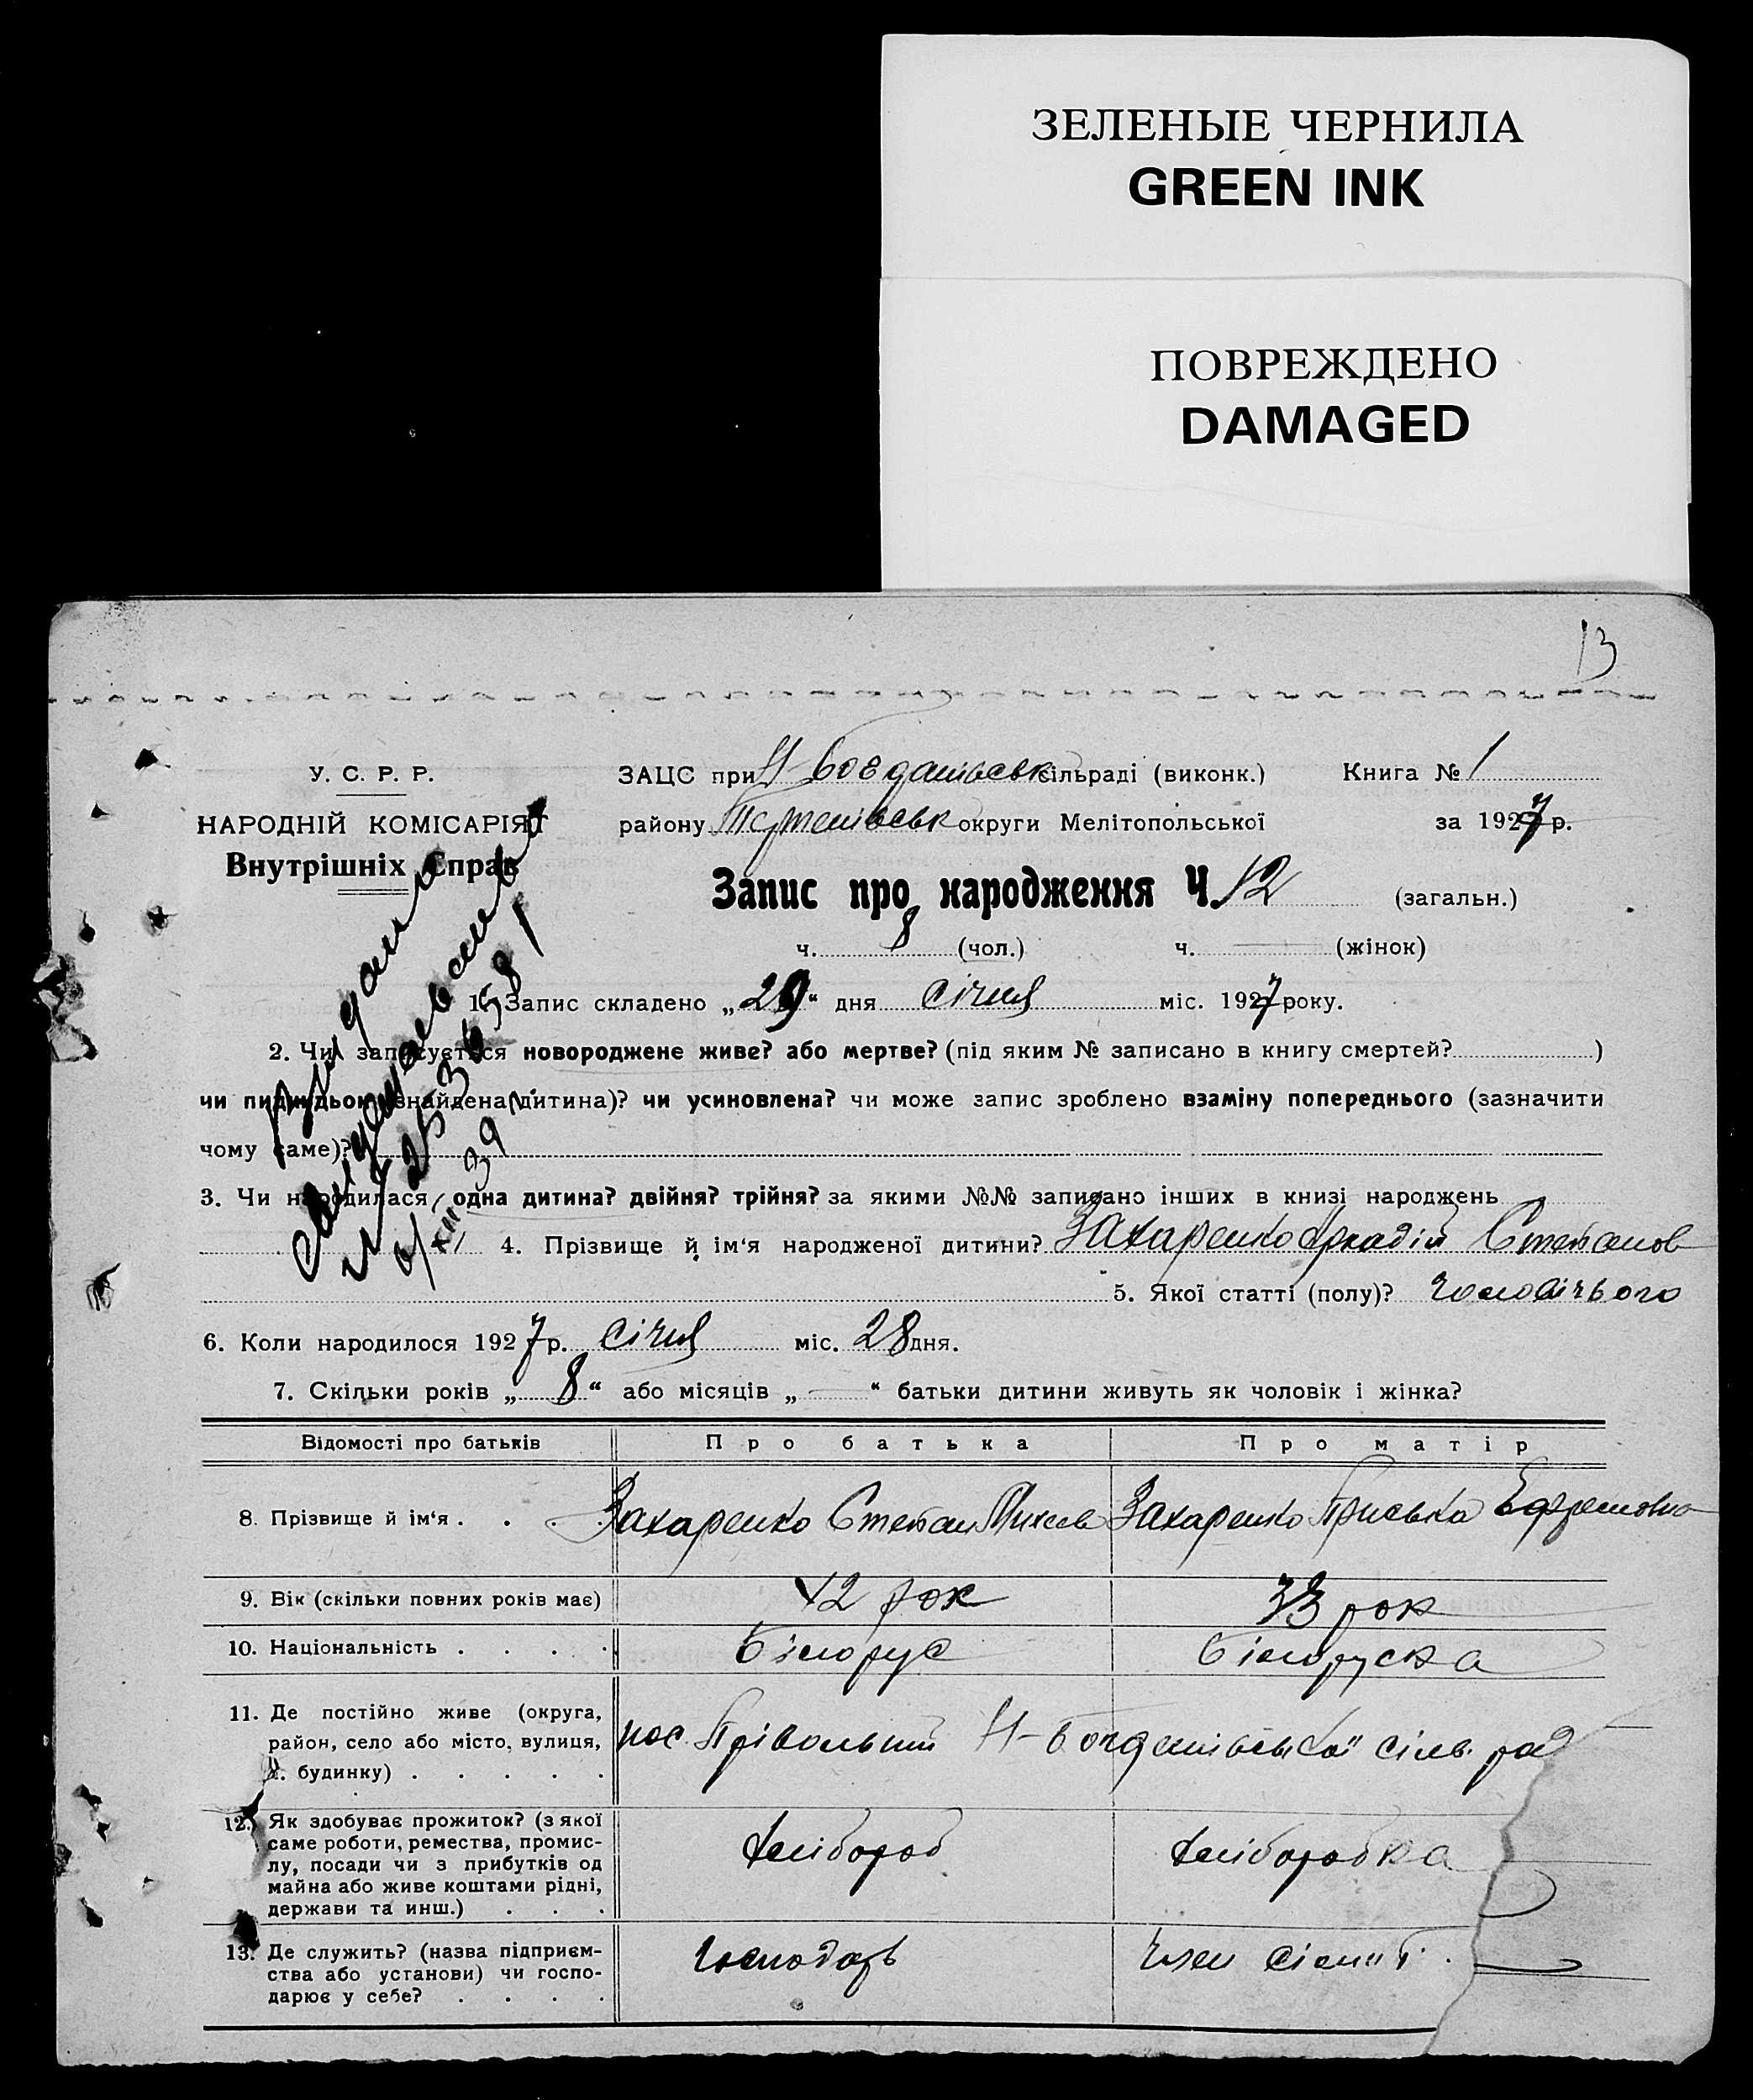 ЗЕЛЕНЫЕ ЧЕРНИЛА
GREEN INK
ПОВРЕЖДЕНО
DAMAGED
13
У. С. Р. Р.
НАРОДНІЙ КОМІСАРІЯТ
Внутрішніх Справ
ЗАЦС при Н Богданівськ сільраді (виконк.) Книга № 1
району Терпенівськ округи Мелітопольської за 1927 р.
Запис про народження Ч. 12 (загальн.)
ч. 8 (чол.) ч. — (жінок)
1. Запис складено „29“ дня Січня міс. 1927 року.
2. Чи записується новороджене живе? або мертве? (під яким № записано в книгу смертей? )
чи підкидьок (знайдена дитина)? чи усиновлена? чи може запис зроблено взаміну попереднього (зазначити
чому саме)?
3. Чи народилася одна дитина? двійня? трійня? за якими №№ записано інших в книзі народжень
4. Прізвище й ім‘я народженої дитини? Захаренко Аркадій Степанов
5. Якої статті (полу)? Чоловічього
6. Коли народилося 1927 р. Січня міс. 28 дня.
7. Скільки років „ 8 “ або місяців „ — “ батьки дитини живуть як чоловік і жінка?
Відомості про батьків Про батька Про матір
8. Прізвище й ім‘я . . . Захаренко Степан Михеев Захаренко Приська Ефремовна
9. Вік (скільки повних років має) 42 рок 33 рок
10. Національність . . . . Білорус Білоруска
11. Де постійно живе (округа,
район, село або місто, вулиця,
ч. будинку) . . . . . пос. Прівольний Н-Богданівської сільрад
12. Як здобуває прожиток? (з якої
саме роботи, ремества, промис-
лу, посади чи з прибутків од
майна або живе коштами рідні,
держави та инш.) . . . Хлібороб Хліборобка
13. Де служить? (назва підприєм-
ства або установи) чи госпо-
дарює у себе? . . . . Господарь Член сім'ї